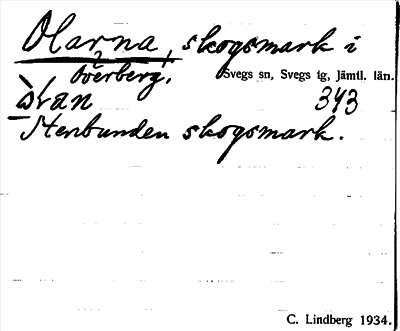 Olarna, skogsmark i
Överberg. Svegs sn, Svegs tg, Jämtl. län.
343
Stenbunden skogsmark.
C. Lindberg 1934.